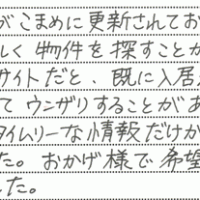 がこまめに更新されてお
しく物件を探すことが
サイトだと、既に入居
て ウンザリすることがあ
タイムリーな情報だけが
た。おかげ様で希望
した。